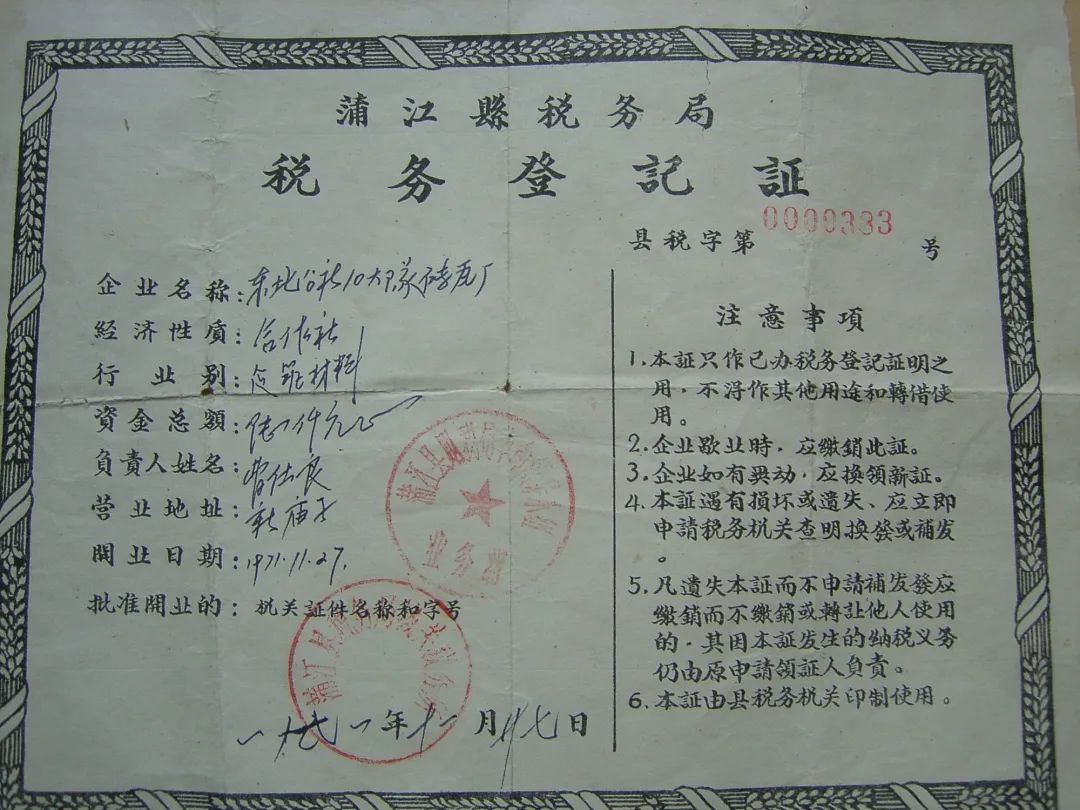 蒲江縣税务局
税务登記証
县税字第0000333号
企业名称：东北公社10大队砖瓦厂
经济性质：合作社
行业别：建筑材料
資金总額：
負責人姓名：曾仕良
营业地址：新庙子
開业日期：1971.11.27.
批准開业的：机关証件名称和字号
一九七一年十一月廿七日
注意事項
1.本証只作已办税务登記証明之
用，不淂作其他用途和轉借使
用。
2.企业歇业時，应繳銷此証。
3.企业如有異动，应換領新証。
4.本証遇有損坏或遺失、应立即
申請税务机关查明換發或補发
。
5.凡遺失本証而不申請補发發应
缴銷而不缴銷或轉讠止他人使用
的，其因本証发生的纳税义务
仍由原申請領証人負責。
6.本証由县税务机关印制使用。
蒲江县
业务
蒲江县